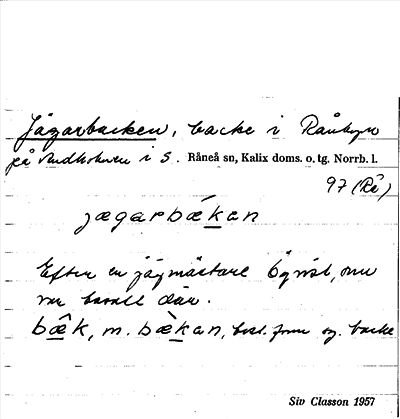 Jägarbacken, backe i Råneby
på sluttningen i S. Råneå sn, Kalix doms. o. tg. Norrb. l.
97 (Rå)
jægarbækan
Efter en jägmästare Öqvist, som
var bosatt där.
bæ̂k, m. bæ̀kan, best. form sg. backe
Siv Classon 1957